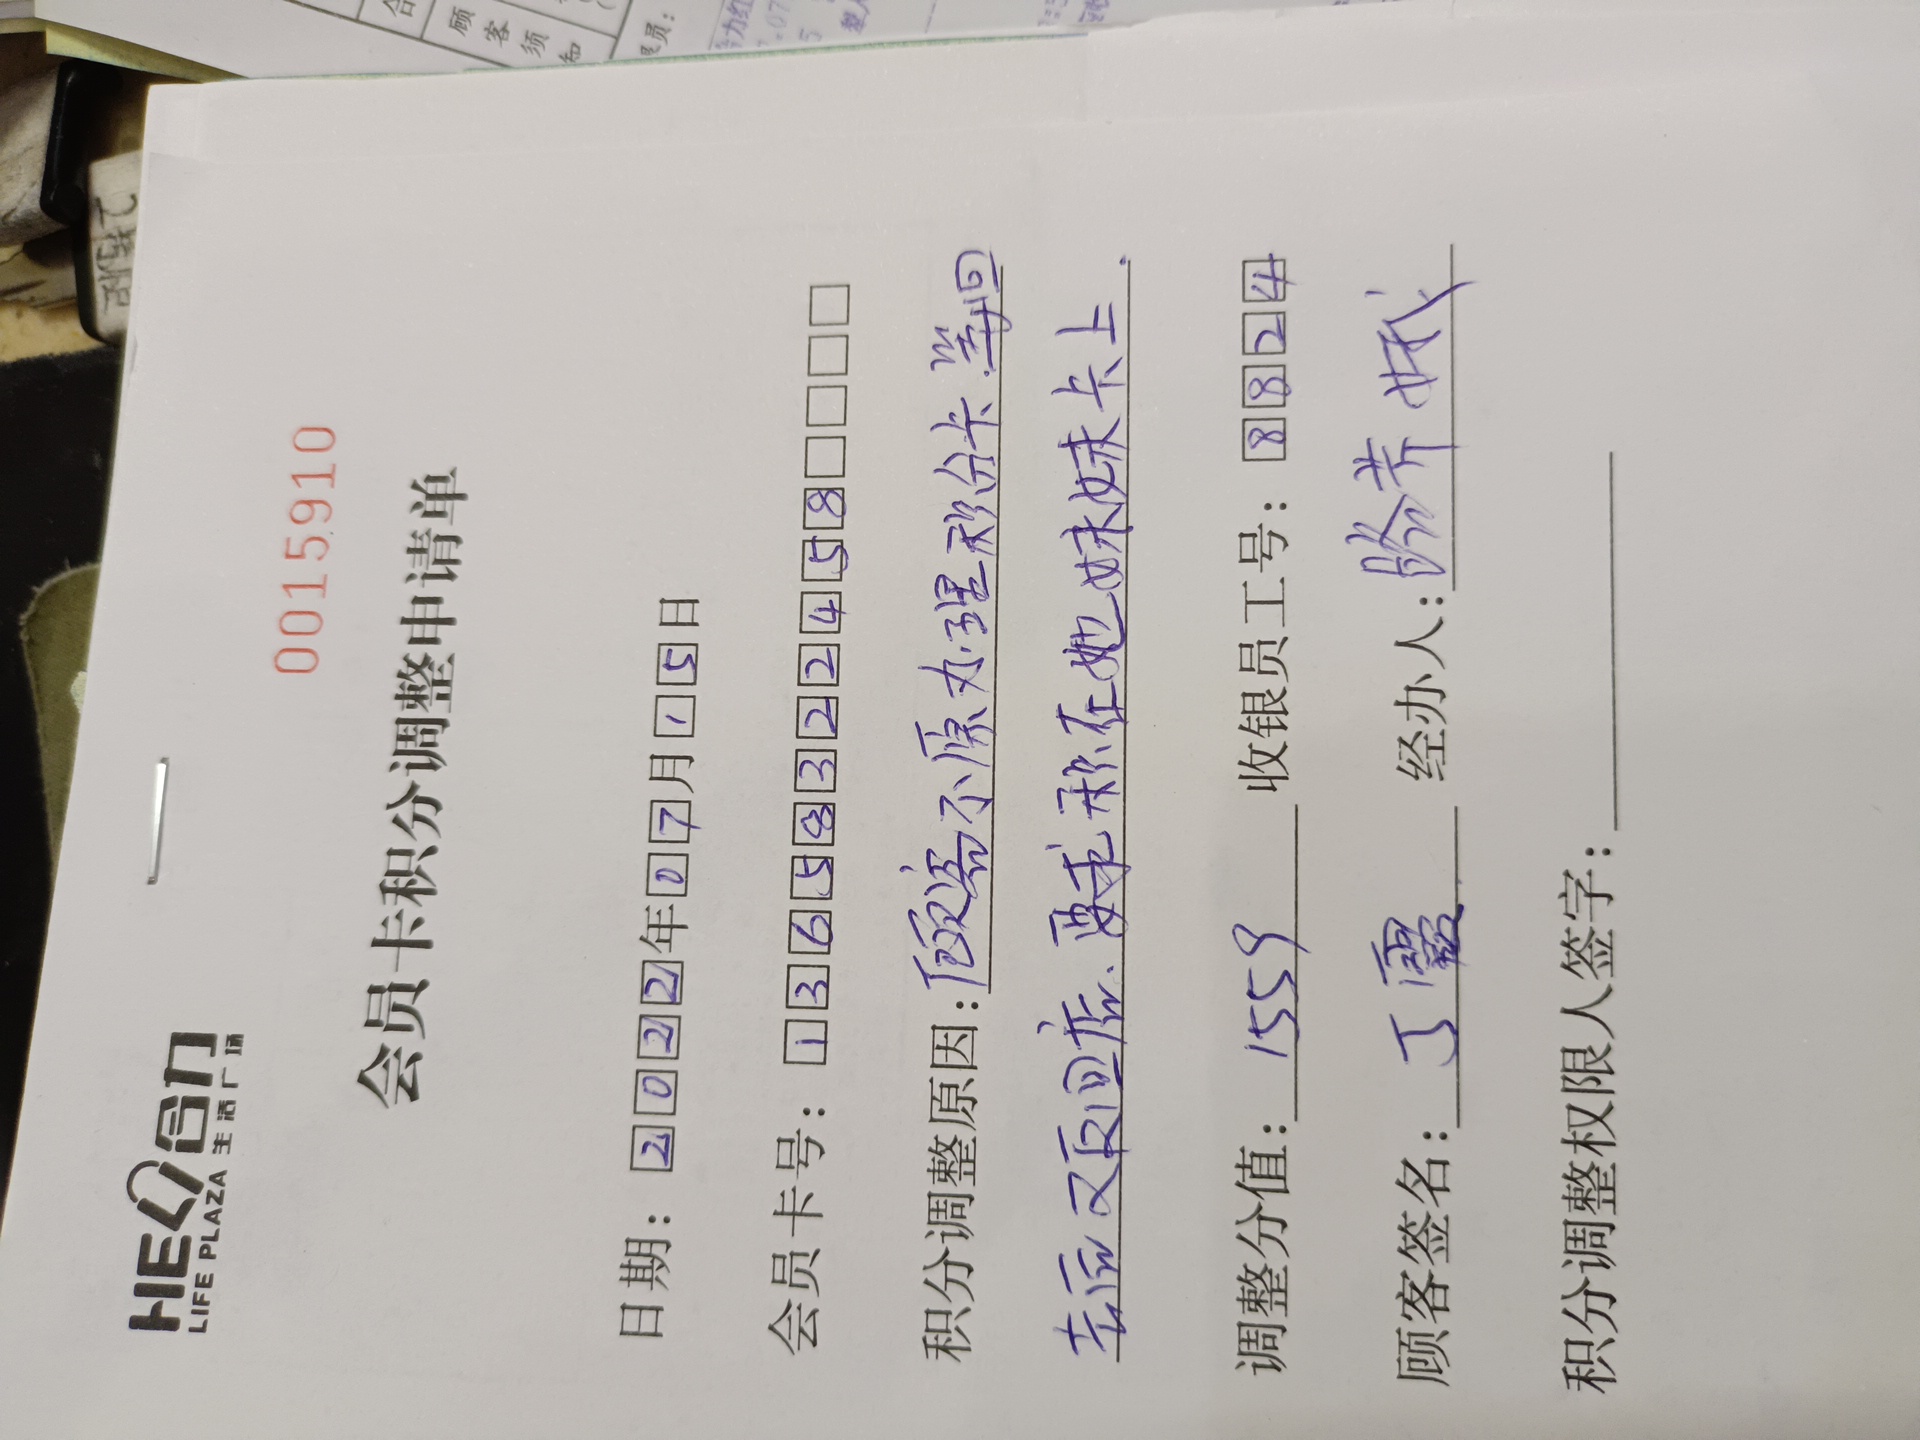 HE 合 生活广场
LIFE PLAZA
0015910
会员卡积分调整申请单
日期：2022年07月15日
会员卡号：13658322458
积分调整原因：顾客不原办理积分卡.等回
去应又返回店、要求积在她妹妹卡上.
调整分值：1559 收银员工号：8824
顾客签名：丁霞 经办人：
积分调整权限人签字：
合
顾客须知
员：